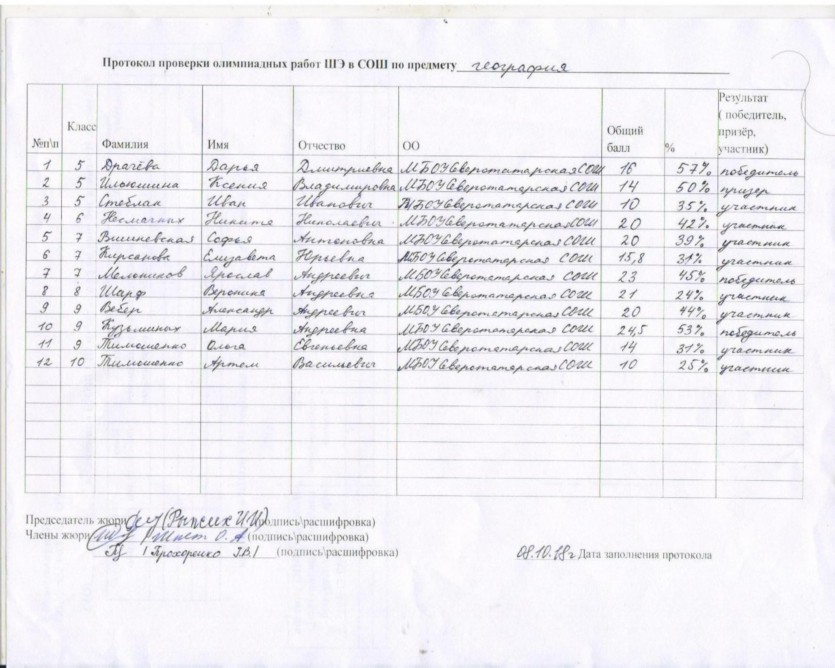 Протокол проверки олимпиадных работ ШЭ в СОШ по предмету география
№п\п Класс Фамилия Имя Отчество ОО Общий балл % Результат ( победитель, призёр, участник)
1 5 Драчёва Дарья Дмитриевна МБОУ Сверотатарская СОШ 16 57% победитель
2 5 Илюшина Ксения Владимировна МБОУ Сверотатарская СОШ 14 50% призер
3 5 Стеблак Иван Иванович МБОУ Сверотатарская СОШ 10 35% участник
4 6 Несмачных Никита Николаевич МБОУ Сверотатарская СОШ 20 42% участник
5 7 Вишневская Софья Антоновна МБОУ Сверотатарская СОШ 20 39% участник
6 7 Кирсанова Елизавета Юрьевна МБОУ Сверотатарская СОШ 15,8 31% участник
7 7 Мельников Ярослав Андреевич МБОУ Сверотатарская СОШ 23 45% победитель
8 8 Шарф Вероника Андреевна МБОУ Сверотатарская СОШ 21 24% участник
9 9 Вебер Александр Андреевич МБОУ Сверотатарская СОШ 20 44% участник
10 9 Кузьминых Мария Андреевна МБОУ Сверотатарская СОШ 24,5 53% победитель
11 9 Тимошенко Ольга Евгеньевна МБОУ Сверотатарская СОШ 14 31% участник
12 10 Тимошенко Артем Васильевич МБОУ Сверотатарская СОШ 10 25% участник
Председатель жюри (Рыжик И.И) (подпись\расшифровка)
Члены жюри О.А (подпись\расшифровка)
/Прохоренко Г.В/ (подпись\расшифровка) 08.10.18г Дата заполнения протокола